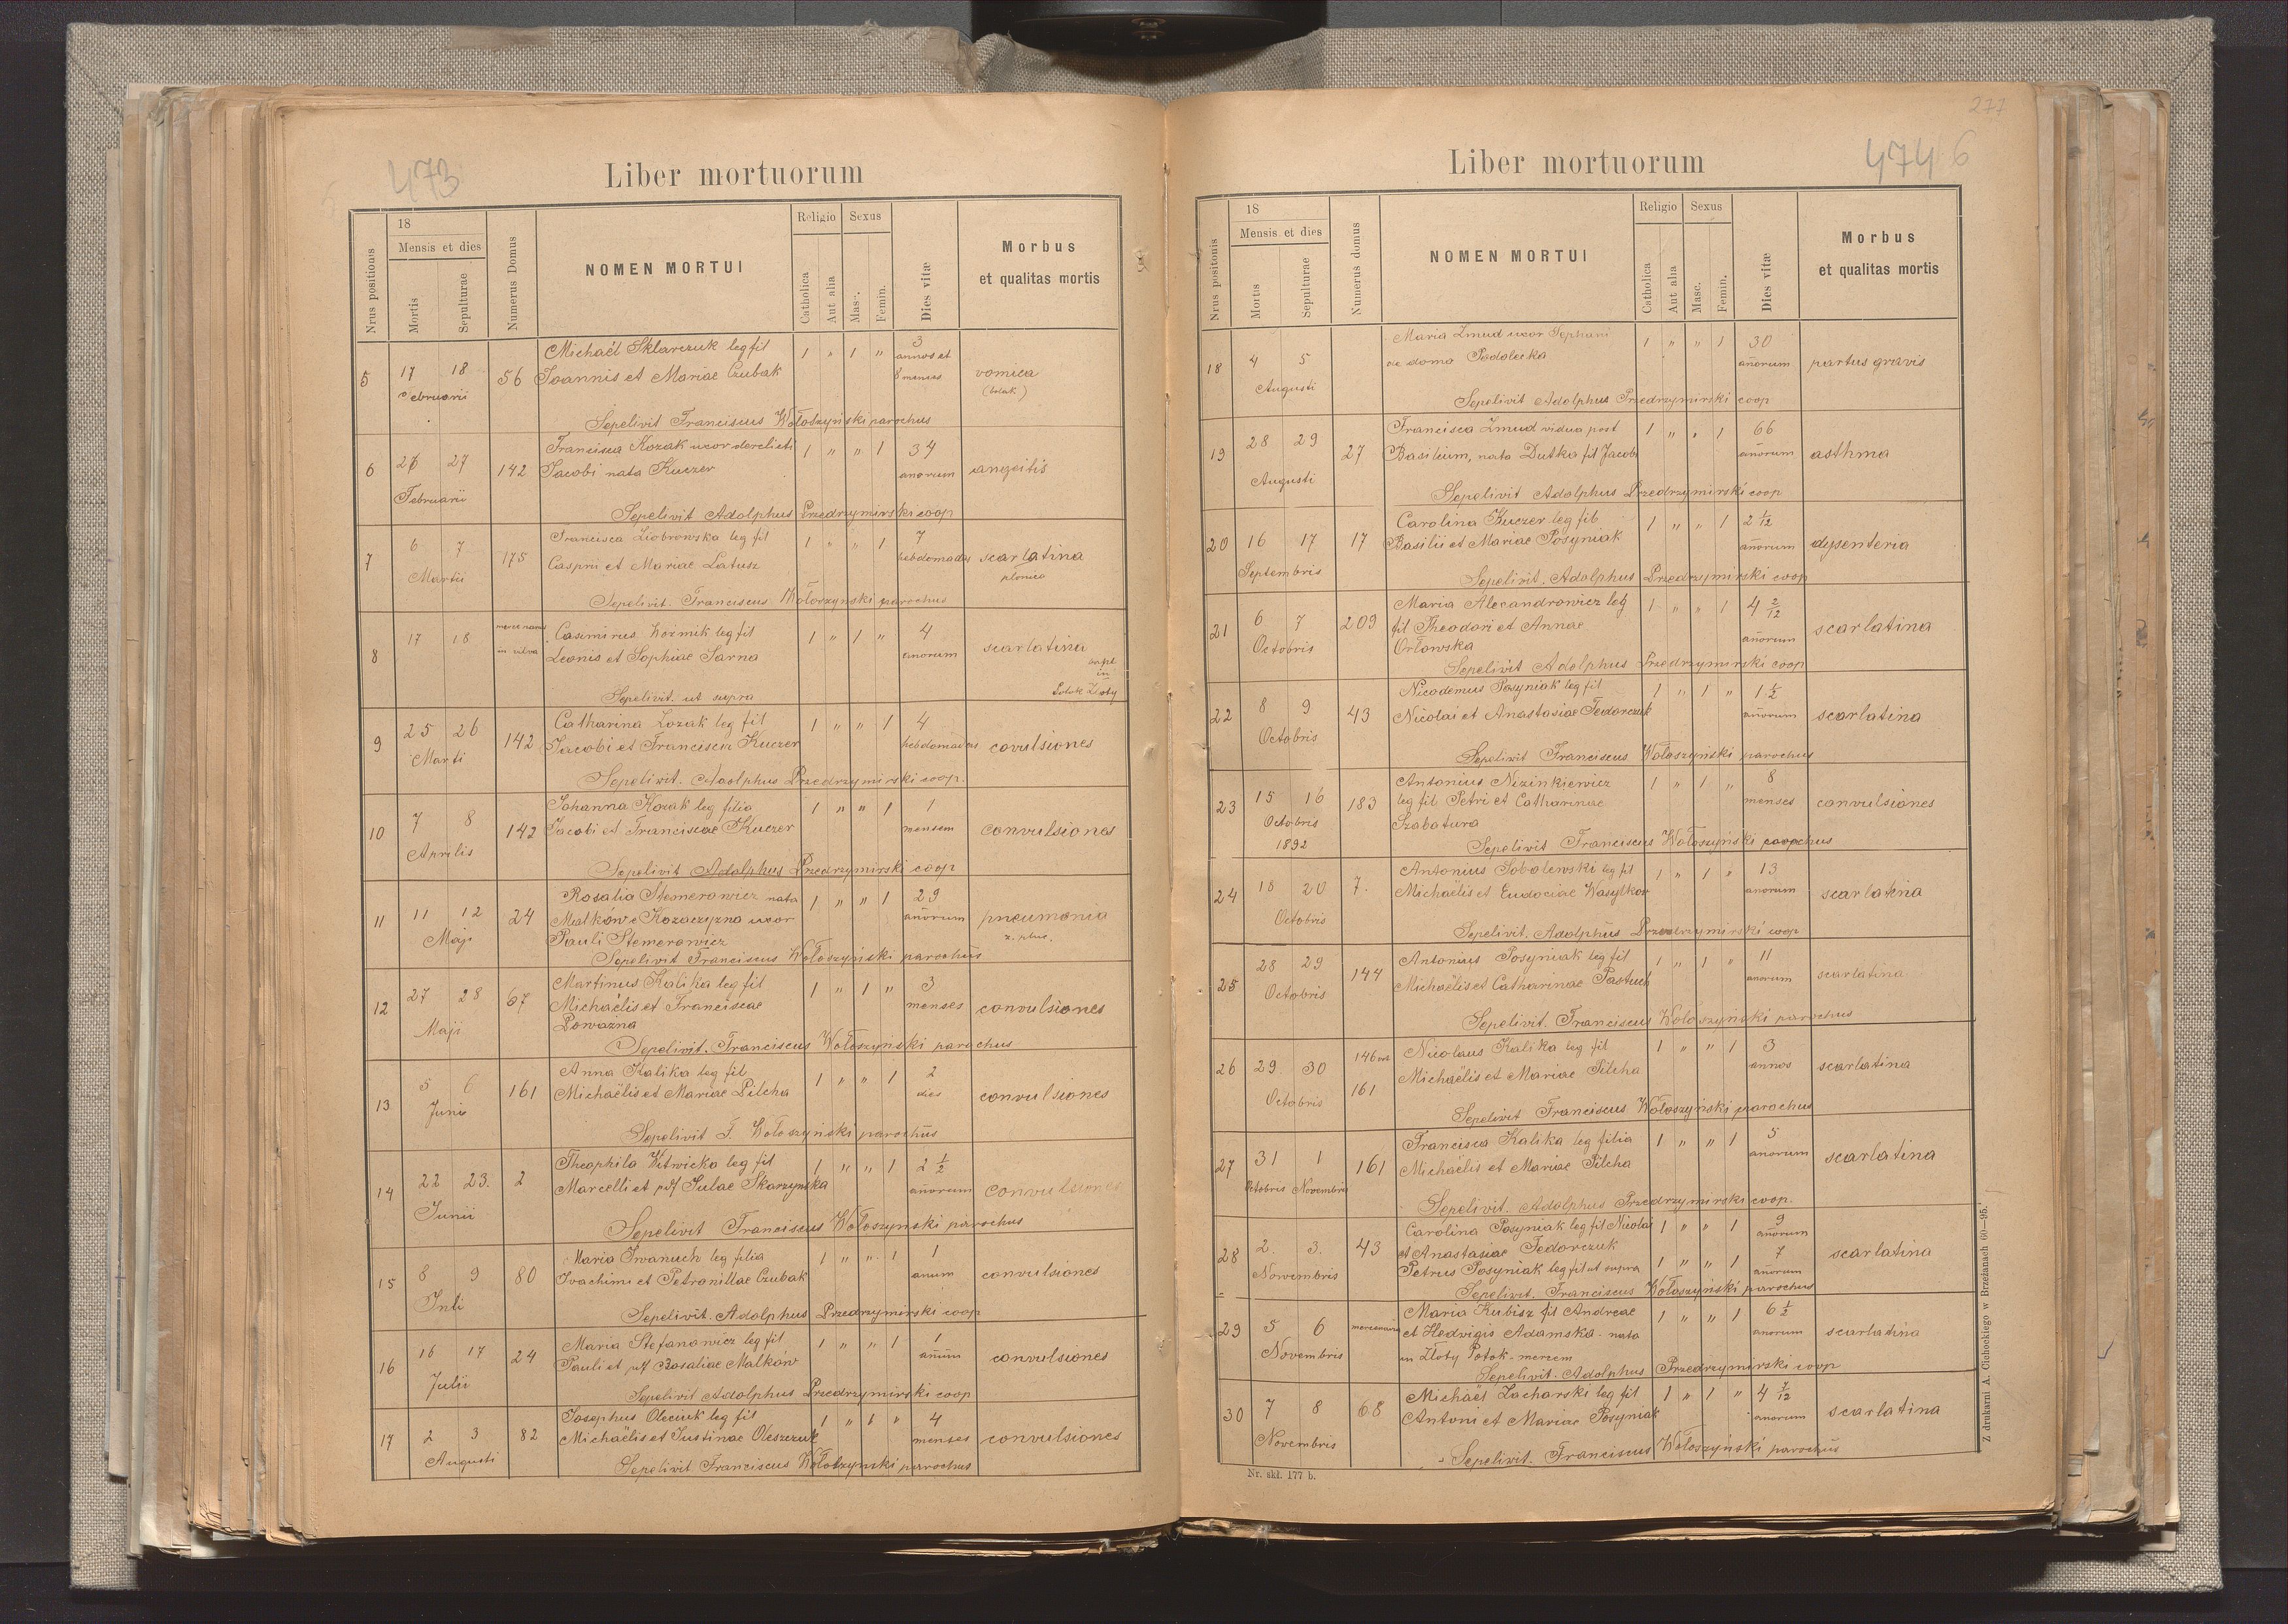 473
Liber mortuorum
Nrus positionis
18
Mensis et dies
Mortis
Sepulturae
Numerus Domus
NOMEN MORTUI
Religio
Catholica
Aut alia
Sexus
Masc.
Femin.
Dies vitæ
Morbus
et qualitas mortis
5 17 18 Februarii 56
Michaël Sklarczuk leg fil
Joannis et Mariae Czubak
1 " 1 "
3 annos et 8 menses
vomica
Sepelivit Franciscus Wołoszyński parochus
6 26 27 Februarii 142
Francisca Kozak uxor derelicti
Jacobi nata Kuczer
1 " " 1
34 anorum
angeitis
Sepelivit Adolphus Przedrzymirski coop
7 6 7 Martii 175
Francisca Ziobrowska leg fil
Caspri et Mariae Latusz
1 " " 1
7 hebdomadas
scarlatina
Sepelivit. Franciscus Wołoszyński parochus
8 17 18
in silva
Casimirus Woźnik leg fil
Leonis et Sophiae Sarna
1 " 1 "
4 anorum
scarlatina
Sepelivit. ut supra
9 25 26 Marti 142
Catharina Kozak leg fil
Jacobi et Francisca Kuczer
1 " " 1
4 hebdomadas
covulsiones
Sepelivit. Adolphus Przedrzymirski coop.
10 7 8 Aprilis 142
Johanna Kozak leg filia
Jacobi et Franciscae Kuczer
1 " " 1
1 mensem
convulsiones
Sepelivit Adolphus Przedrzymirski coop
11 11 12 Maji 24
Rosalia Stemerowicz nata
Malków e Kozaczyzna uxor
Pauli Stemerowicz
1 " " 1
29 anorum
pneumonia
z. płuc.
Sepelivit Franciscus Wołoszyński parochus
12 27 28 Maji 67
Martinus Kalika leg fil
Michaëlis et Franciscae
Poważna
1 " 1 "
3 menses
convulsiones
Sepelivit. Franciscus Wołoszyński parochus
13 5 6 Junii 161
Anna Kalika leg fil
Michaëlis et Mariae Pilcha
1 " " 1
2 dies
convulsiones
Sepelivit F. Wołoszyński parochus
14 22 23. Junii 2
Theophila Witwicka leg fil
Marcelli et Julae Skarzynska
1 " " 1
2 1/2 anorum
convulsiones
Sepelivit Franciscus Wołoszyński parochus
15 8 9 Juli 80
Maria Iwanuch leg filia
Joachimi et Petronillae Czubak
1 " " 1
1 anum
convulsiones
Sepelivit. Adolphus Przedrzymirski coop
16 16 17 Julii 24
Maria Stefanowicz leg fil
Pauli et Rosaliae Malków
1 " " 1
1 anum
convulsiones
Sepelivit Adolphus Przedrzymirski coop
17 2 3 Augusti 82
Josephus Oleciuk leg fil
Michaëlis et Justinae Oleszczuk
1 " 1 "
4 menses
convulsiones
Sepelivit Franciscus Wołoszyński parochus
277
474 6
Liber mortuorum
Nrus positonis
18
Mensis et dies
Mortis
Sepulturae
Numerus domus
NOMEN MORTUI
Religio
Catholica
Aut alia
Sexus
Masc.
Femin.
Dies vitæ
Morbus
et qualitas mortis
18 4 5 Augusti
Maria Zmud uxor Stephani
de domo Podolecka
1 " " 1
30 anorum
partus gravis
Sepelivit Adolphus Przedrzymirski coop
19 28 29 Augusti 27
Francisca Zmud vidua post
Basilium, nata Dutka fil Jacobi
1 " " 1
66 anorum
asthma
Sepelivit Adolphus Przedrzymirski coop
20 16 17 Septembris 17
Carolina Kuczer leg fil
Basilii et Mariae Posyniak
1 " " 1
2 1/12 anorum
dysenteria
Sepelivit. Adolphus Przedrzymirski coop
21 6 7 Octobris 209
Maria Alexandrowicz leg
fil Theodori et Annae
Orłowska
1 " " 1
4 2/12 anorum
scarlatina
Sepelivit Adolphus Przedrzymirski coop
22 8 9 Octobris 43
Nicodemus Posyniak leg fil
Nicolai et Anastasiae Fedorczuk
1 " 1 "
1 1/2 anorum
scarlatina
Sepelivit Franciscus Wołoszyński parochus
23 15 16 Octobris 1892 183
Antonius Nizinkiewicz
leg fil Petri et Catharinae
Szabatura
1 " 1 "
8 menses
convulsiones
Sepelivit Franciscus Wołoszyński parochus
24 18 20 Octobris 7.
Antonius Sobolewski leg fil
Michaëlis et Eudociae Wasylkow
1 " 1 "
13 anorum
scarlatina
Sepelivit. Adolphus Przedrzymirski coop
25 28 29 Octobris 144
Antonius Posyniak leg fil
Michaëlis et Catharinae Pastuch
1 " 1 "
11 anorum
scarlatina
Sepelivit. Franciscus Wołoszyński parochus
26 29 30 Octobris 146 161
Nicolaus Kalika leg fil
Michaëlis et Mariae Pilcha
1 " " 1
3 annos
scarlatina
Sepelivit Franciscus Wołoszyński parochus
27 31 1 Octobris Novembris 161
Francisca Kalika leg filia
Michaëlis et Mariae Pilcha
1 " " 1
5 anorum
scarlatina
Sepelivit. Adolphus Przedrzymirski coop.
28 2. 3. Novembris 43
Carolina Posyniak leg fil Nicolai
et Anastasiae Fedorczuk
1 " " 1
9 anorum
Petrus Posyniak leg fil ut supra
1 " " 1
7 anorum
scarlatina
Sepelivit. Franciscus Wołoszyński parochus
29 5 6 Novembris
Maria Kubisz fil Andreae
et Hedvigis Adamska - nata
in Złoty Potok - mercem
1 " " 1
6 1/2 anorum
scarlatina
Sepelivit. Adolphus Przedrzymirski coop
30 7 8 Novembris 68
Michaël Zacharski leg fil
Antoni et Mariae Posyniak
1 " 1 "
4 7/12 anorum
scarlatina
Sepelivit. Franciscus Wołoszyński parochus
Nr. skł. 177 b.
Z drukarni A. Cichockiego w Brzeżanach 60—95.